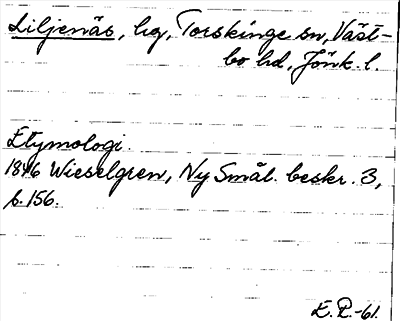 Liljenäs, hg, Torskinge sn, Väst-
bo hd, Jönk. l.
Etymologi.
1846 Wieselgren, Ny Smål. beskr. 3,
s. 156.
E. P. -61.